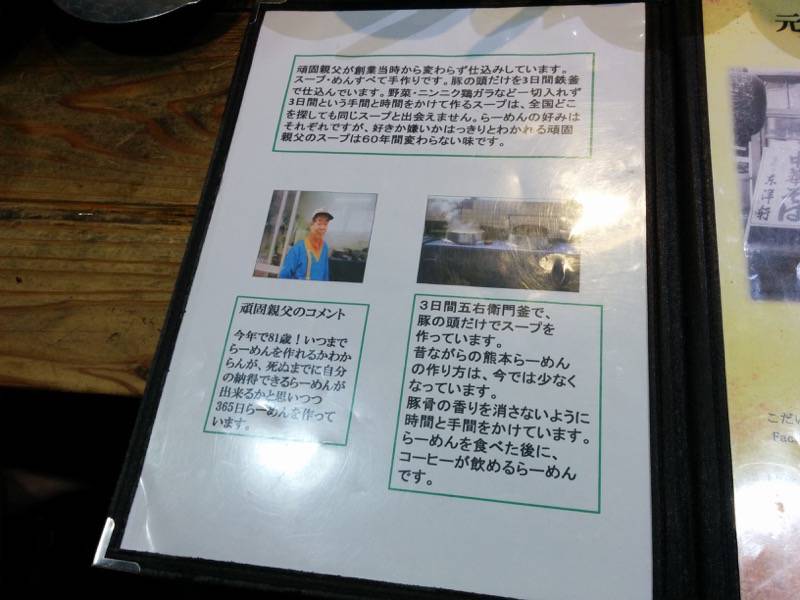 頑固親父が創業当時から変わらず仕込みしています。
スープ・めんすべて手作りです。豚の頭だけを3日間鉄釜
で仕込んでいます。野菜・ニンニク鶏ガラなど一切入れず
3日間という手間と時間をかけて作るスープは、全国どこ
を探しても同じスープと出会えません。らーめんの好みは
それぞれですが、好きか嫌いかはっきりとわかれる頑固
親父のスープは60年間変わらない味です。
頑固親父のコメント
今年で81歳！いつまで
らーめんを作れるかわか
らんが、死ぬまでに自分
の納得できるらーめんが
出来るかと思いつつ
365日らーめんを作って
います。
3日間五右衛門釜で、
豚の頭だけでスープを
作っています。
昔ながらの熊本らーめん
の作り方は、今では少なく
なっています。
豚骨の香りを消さないように
時間と手間をかけています。
らーめんを食べた後に、
コーヒーが飲めるらーめん
です。
元
中華そば
東洋軒
こだい
Fac